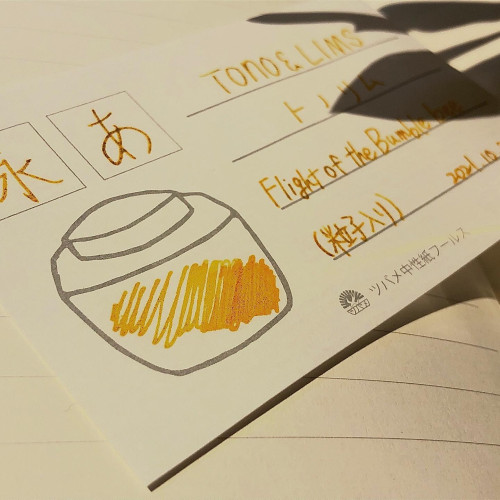 TONO & LIMS
トノリム
Flight of the Bumble bee
(粒子入り)
2021.10.
永
あ
ツバメ中性紙フールス